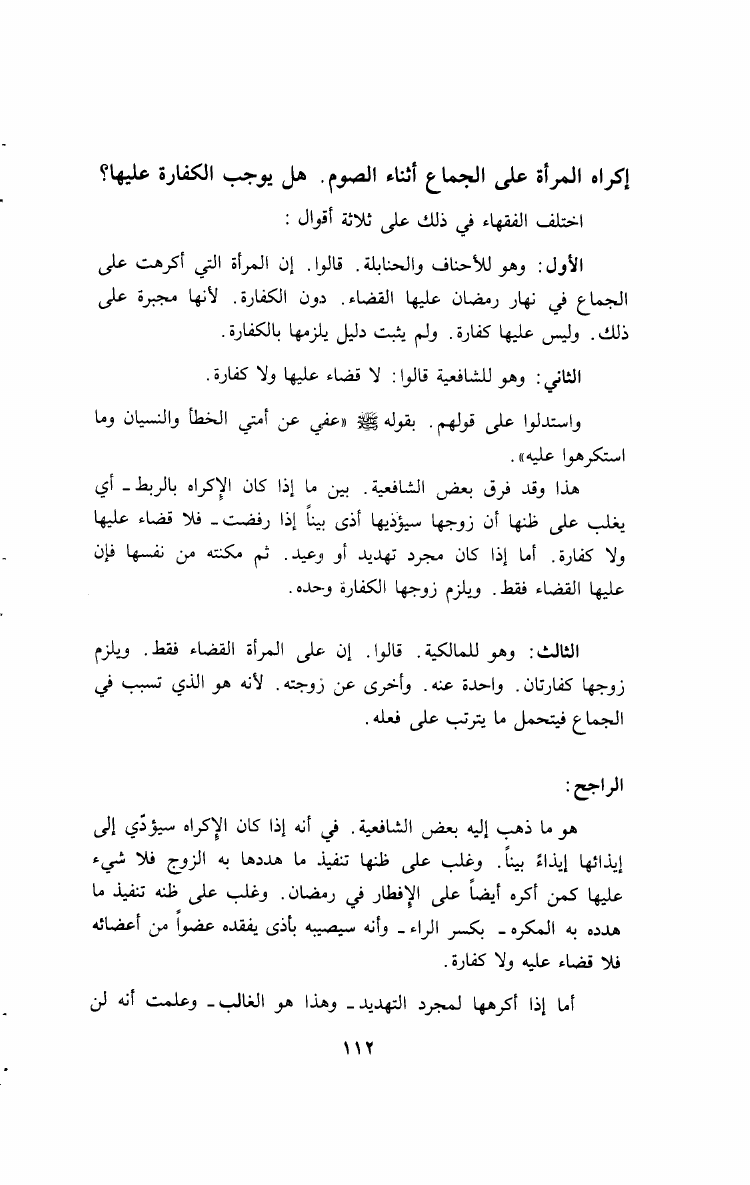 إكراه المرأة على الجماع أثناء الصوم. هل يوجب الكفارة عليها؟
اختلف الفقهاء في ذلك على ثلاثة أقوال :
الأول: وهو للأحناف والحنابلة. قالوا. إن المرأة التي أكرهت على
الجماع في نهار رمضان عليها القضاء. دون الكفارة. لأنها مجبرة على
ذلك. وليس عليها كفارة. ولم يثبت دليل يلزمها بالكفارة.
الثاني: وهو للشافعية قالوا: لا قضاء عليها ولا كفارة.
واستدلوا على قولهم. بقوله ﷺ «عفي عن أمتي الخطأ والنسيان وما
استكرهوا عليه».
هذا وقد فرق بعض الشافعية. بين ما إذا كان الإكراه بالربط ـ أي
يغلب على ظنها أن زوجها سيؤذيها أذى بيناً إذا رفضت ـ فلا قضاء عليها
ولا كفارة. أما إذا كان مجرد تهديد أو وعيد. ثم مكنته من نفسها فإن
عليها القضاء فقط. ويلزم زوجها الكفارة وحده.
الثالث: وهو للمالكية. قالوا. إن على المرأة القضاء فقط. ويلزم
زوجها كفارتان. واحدة عنه. وأخرى عن زوجته. لأنه هو الذي تسبب في
الجماع فيتحمل ما يترتب على فعله.
الراجح:
هو ما ذهب إليه بعض الشافعية. في أنه إذا كان الإكراه سيؤدّي إلى
إيذائها إيذاءً بيناً. وغلب على ظنها تنفيذ ما هددها به الزوج فلا شيء
عليها كمن أكره أيضاً على الإفطار في رمضان. وغلب على ظنه تنفيذ ما
هدده به المكره ـ بكسر الراء ـ وأنه سيصيبه بأذى يفقده عضواً من أعضائه
فلا قضاء عليه ولا كفارة.
أما إذا أكرهها لمجرد التهديد ـ وهذا هو الغالب ـ وعلمت أنه لن
١١٢